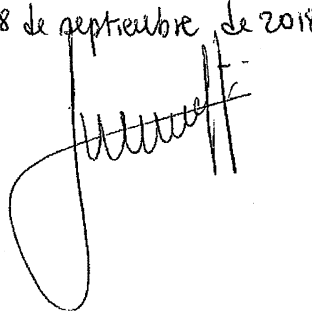 8 de septiembre de 2018